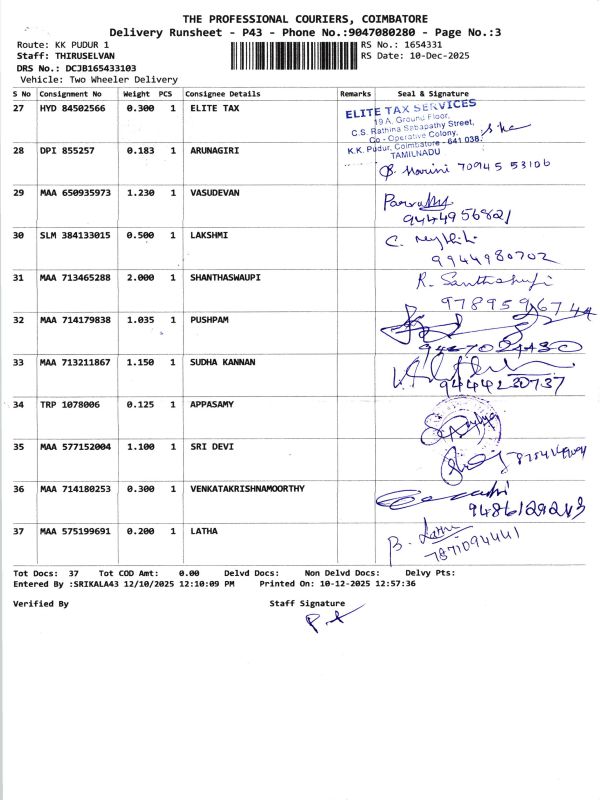 THE PROFESSIONAL COURIERS, COIMBATORE
Delivery Runsheet - P43 - Phone No.:9047080280 - Page No.:3
Route: KK PUDUR 1 RS No.: 1654331
Staff: THIRUSELVAN RS Date: 10-Dec-2025
DRS No.: DCJB165433103
Vehicle: Two Wheeler Delivery
S No Consignment No Weight PCS Consignee Details Remarks Seal & Signature
27 HYD 84502566 0.300 1 ELITE TAX
ELITE TAX SERVICES
19 A, Ground Floor,
C.S. Rathina Sabapathy Street,
Co - Operative Colony,
K.K. Pudur, Coimbatore - 641 038.
TAMILNADU
28 DPI 855257 0.183 1 ARUNAGIRI
B. Harini 70945 53106
29 MAA 650935973 1.230 1 VASUDEVAN
9444956821
30 SLM 384133015 0.500 1 LAKSHMI
9944980702
31 MAA 713465288 2.000 1 SHANTHASWAUPI
R. Santhashupi
32 MAA 714179838 1.035 1 PUSHPAM
33 MAA 713211867 1.150 1 SUDHA KANNAN
9444230737
34 TRP 1078006 0.125 1 APPASAMY
35 MAA 577152004 1.100 1 SRI DEVI
36 MAA 714180253 0.300 1 VENKATAKRISHNAMOORTHY
9486129213
37 MAA 575199691 0.200 1 LATHA
B. Latha
7871094441
Tot Docs: 37 Tot COD Amt: 0.00 Delvd Docs: Non Delvd Docs: Delvy Pts:
Entered By :SRIKALA43 12/10/2025 12:10:09 PM Printed On: 10-12-2025 12:57:36
Verified By Staff Signature